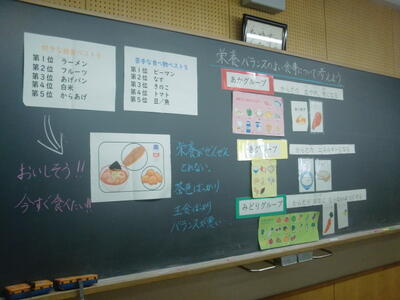 栄養バランスのよい食事について考えよう
好きな給食ベスト5
第1位 ラーメン
第2位 フルーツ
第3位 あげパン
第4位 白米
第5位 からあげ
苦手な食べ物ベスト5
第1位 ピーマン
第2位 なす
第3位 きのこ
第4位 トマト
第5位 豆/魚
おいしそう!!
今すぐ食べたい!!
栄養がぜんぜん
とれない。
茶色ばっかり
主食ばっかり
バランスが悪い
あかグループ
きグループ
みどりグループ